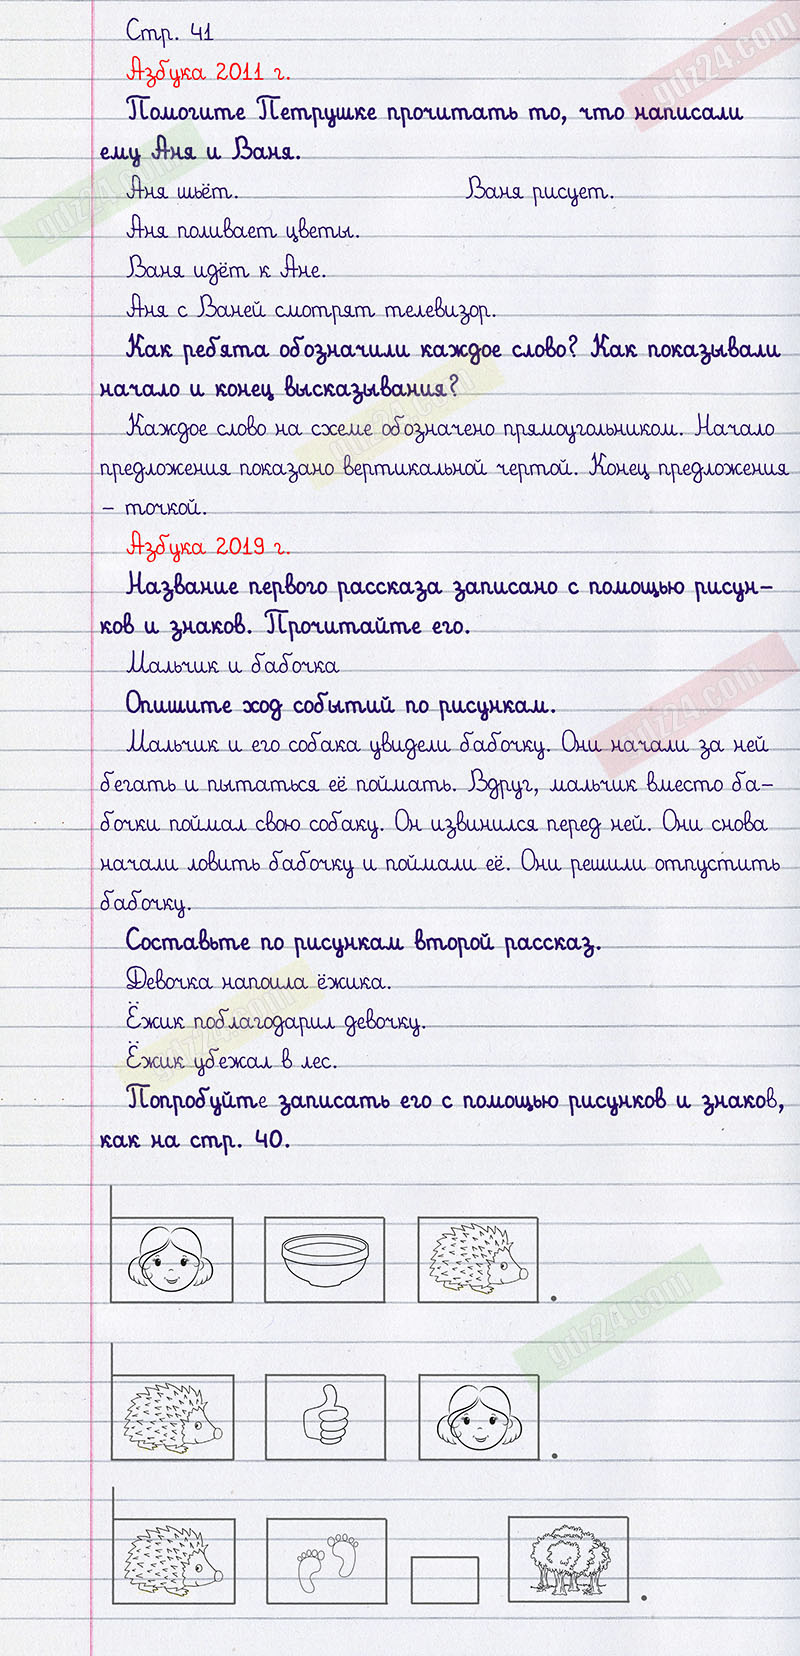 Стр. 41
Азбука 2011 г.
Помогите Петрушке прочитать то, что написали
ему Аня и Ваня.
Аня шьёт. Ваня рисует.
Аня поливает цветы.
Ваня идёт к Ане.
Аня с Ваней смотрят телевизор.
Как ребята обозначили каждое слово? Как показывали
начало и конец высказывания?
Каждое слово на схеме обозначено прямоугольником. Начало
предложения показано вертикальной чертой. Конец предложения
– точкой.
Азбука 2019 г.
Название первого рассказа записано с помощью рисун-
ков и знаков. Прочитайте его.
Мальчик и бабочка
Опишите ход событий по рисункам.
Мальчик и его собака увидели бабочку. Они начали за ней
бегать и пытаться её поймать. Вдруг, мальчик вместо ба-
бочки поймал свою собаку. Он извинился перед ней. Они снова
начали ловить бабочку и поймали её. Они решили отпустить
бабочку.
Составьте по рисункам второй рассказ.
Девочка напоила ёжика.
Ёжик поблагодарил девочку.
Ёжик убежал в лес.
Попробуйте записать его с помощью рисунков и знаков,
как на стр. 40.
gdz24.com
gdz24.com
gdz24.com
gdz24.com
gdz24.com
gdz24.com